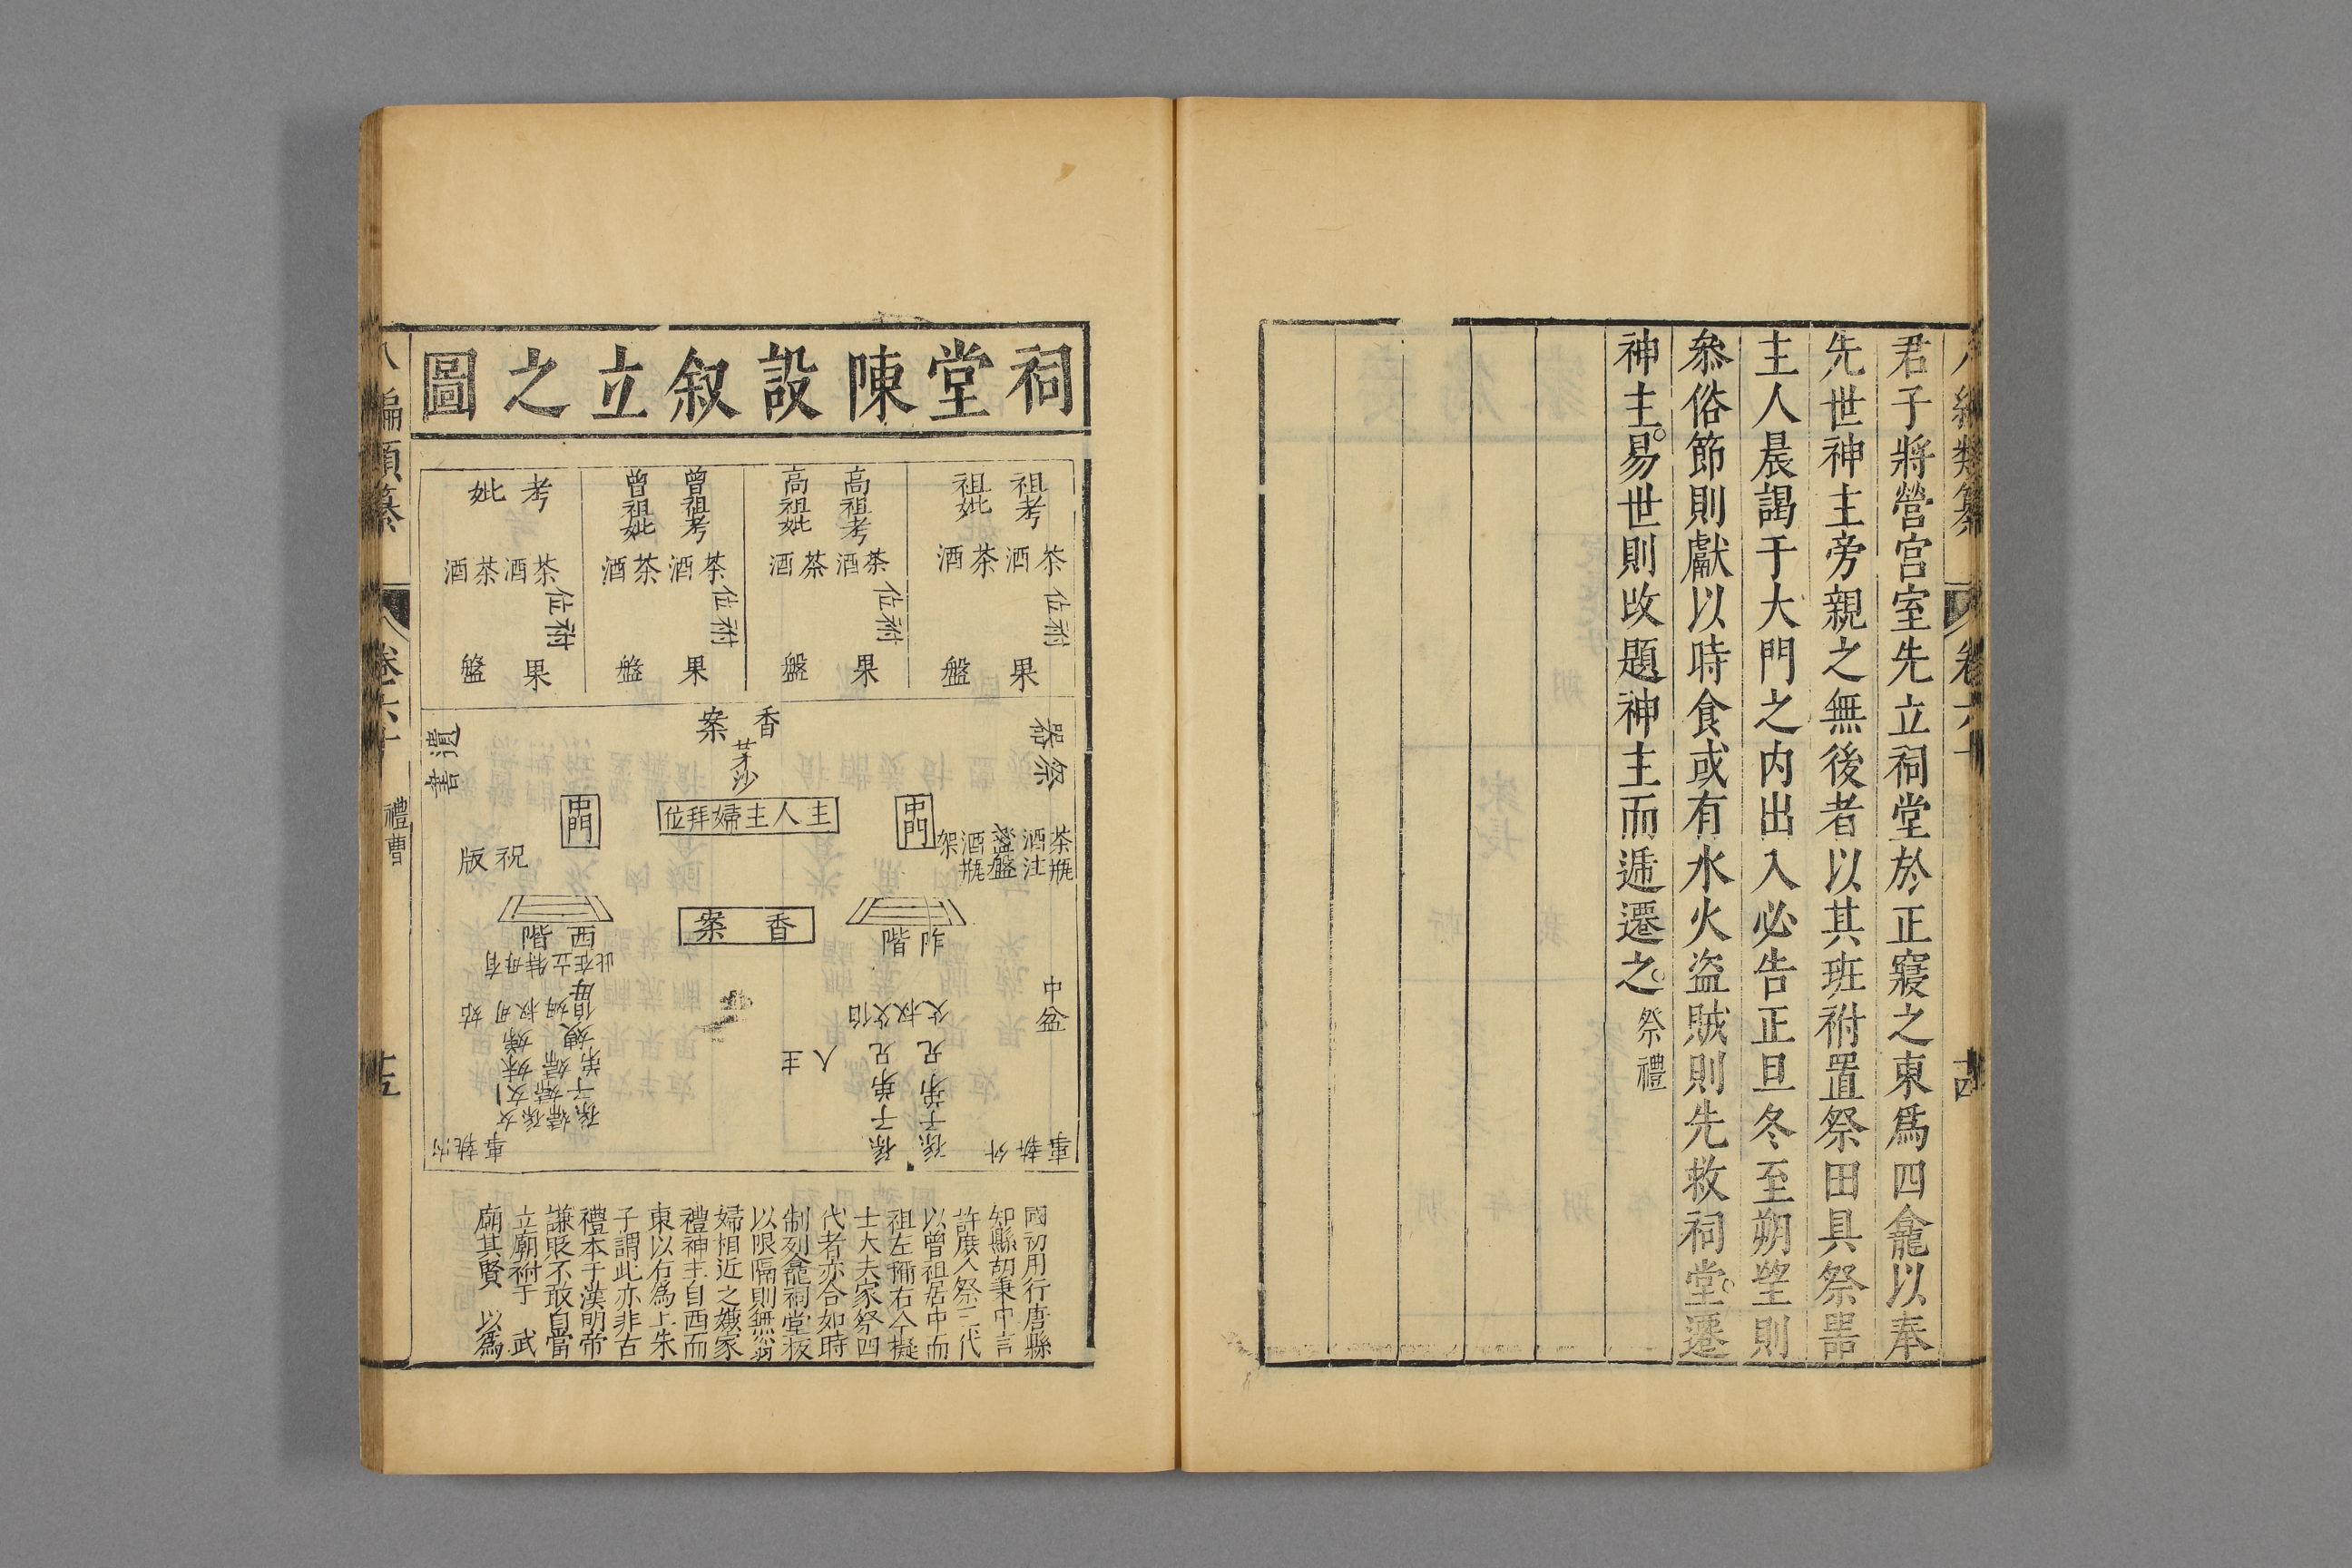 八編類纂 卷六十
君子將營宮室先立祠堂於正寢之東爲四龕以奉
先世神主旁親之無後者以其班祔置祭田具祭噐
主人晨謁于大門之內出入必告正旦冬至朔望則
叅俗節則獻以時食或有水火盜賊則先救祠堂。遷
神主。易世則改題神主而遞遷之。祭禮
祠堂陳設叙立之圖
祖考 祖妣
茶酒茶酒
祔位
果盤
高祖考 高祖妣
茶酒茶酒
祔位
果盤
曾祖考 曾祖妣
茶酒茶酒
祔位
果盤
考 妣
茶酒茶酒
祔位
果盤
祭器
香案
茅沙
遺書
中門
主人主婦拜位
中門
茶瓶
酒注
盞盤
酒瓶
架
祝版
阼階
香案
西階
有母特立在此
盆巾
伯父叔父
兄弟子孫
兄弟子孫
主人
母
姑
外執事
內執事
國初用行唐縣
知縣胡秉中言
許庶人祭三代
以曾祖居中而
祖左禰右今擬
士大夫家祭四
代者亦合如時
制列龕祠堂板
以限隔則無翁
婦相近之嫌家
禮神主自西而
東以右爲上朱
子謂此亦非古
禮本于漢明帝
謙貶不敢自當
立廟祔于 武
廟其賢 以爲
八編類纂 卷六十 禮曹